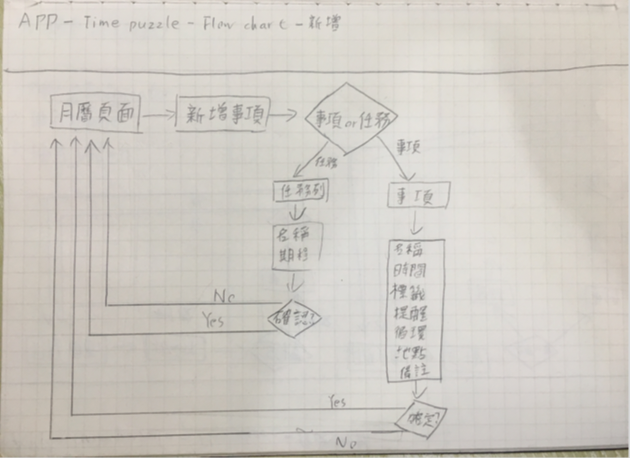 APP - Time puzzle - Flow chart - 新增
月曆頁面
新增事項
事項or任務
任務
事項
任務列
事項
名稱
期程
名稱
時間
標籤
提醒
循環
地點
備註
No
確認?
Yes
Yes
確定?
No